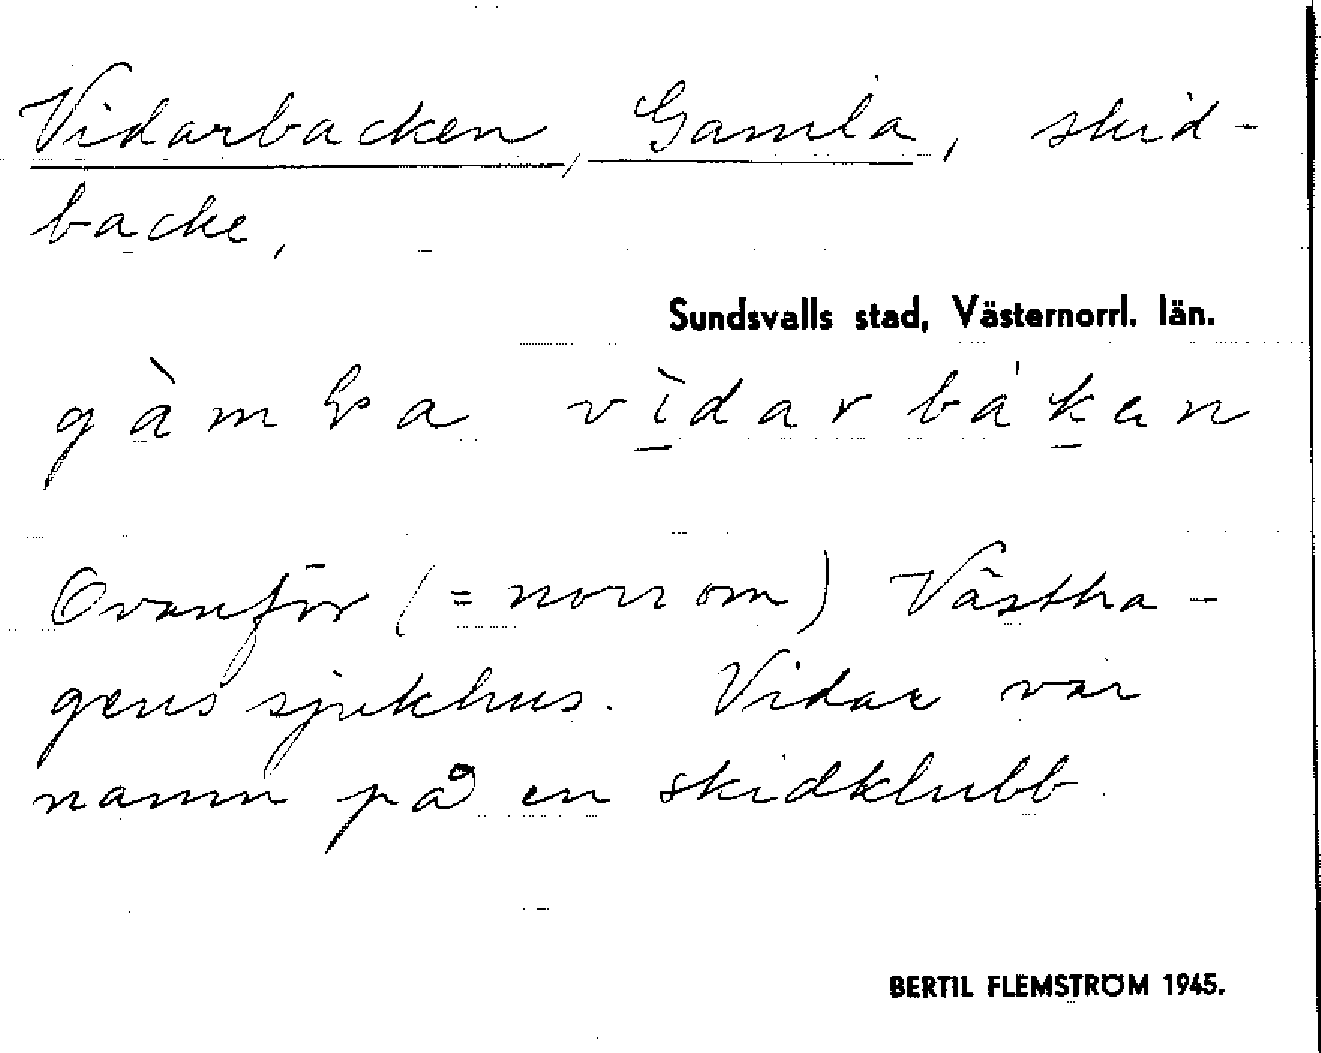 Vidarbacken, Gamla, skid-
backe,
Sundsvalls stad, Västernorrl. län.
Ovanför (= norr om) Västha-
gens sjukhus. Vidar var
namn på en skidklubb.
BERTIL FLEMSTRÖM 1945.